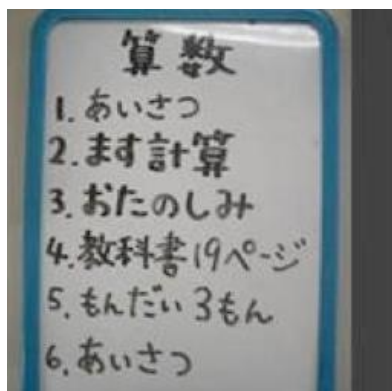 算数
1. あいさつ
2. ます計算
3. おたのしみ
4. 教科書19ページ
5. もんだい3もん
6. あいさつ